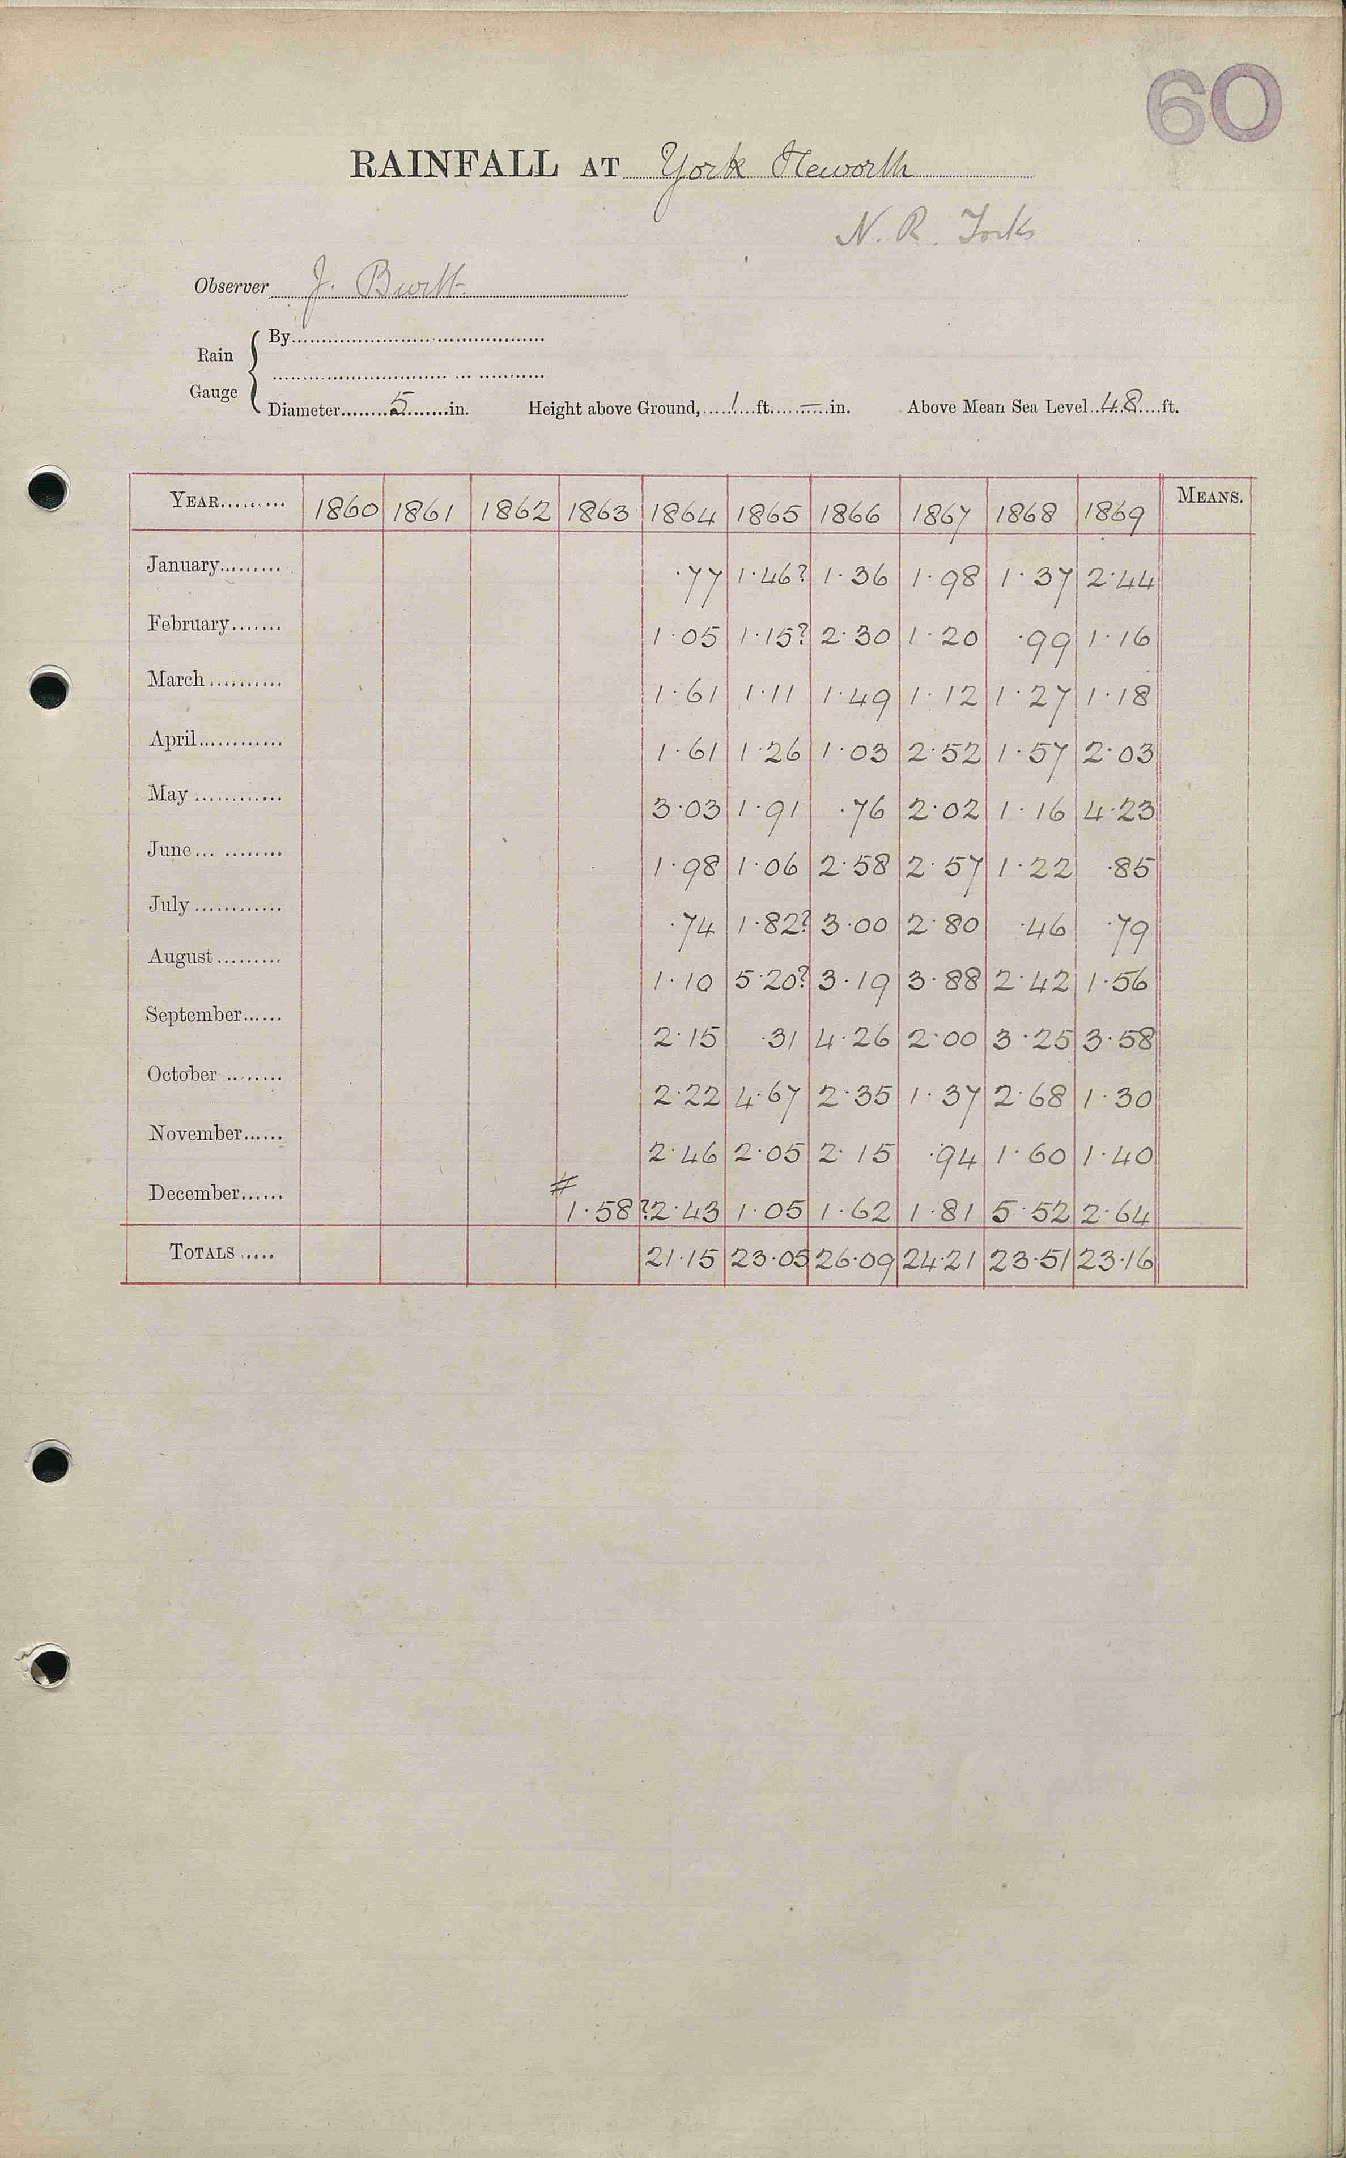 60
RAINFALL AT York Heworth
N. R. Yorks
Observer J. Burtt
Rain Gauge { By
Diameter 5 in. Height above Ground, 1 ft. — in. Above Mean Sea Level 48 ft.
YEAR 1860 1861 1862 1863 1864 1865 1866 1867 1868 1869 MEANS.
January ·77 1·46? 1·36 1·98 1·37 2·44
February 1·05 1·15? 2·30 1·20 ·99 1·16
March 1·61 1·11 1·49 1·12 1·27 1·18
April 1·61 1·26 1·03 2·52 1·57 2·03
May 3·03 1·91 ·76 2·02 1·16 4·23
June 1·98 1·06 2·58 2·57 1·22 ·85
July ·74 1·82? 3·00 2·80 ·46 ·79
August 1·10 5·20? 3·19 3·88 2·42 1·56
September 2·15 ·31 4·26 2·00 3·25 3·58
October 2·22 4·67 2·35 1·37 2·68 1·30
November 2·46 2·05 2·15 ·94 1·60 1·40
December # 1·58? 2·43 1·05 1·62 1·81 5·52 2·64
TOTALS 21·15 23·05 26·09 24·21 23·51 23·16